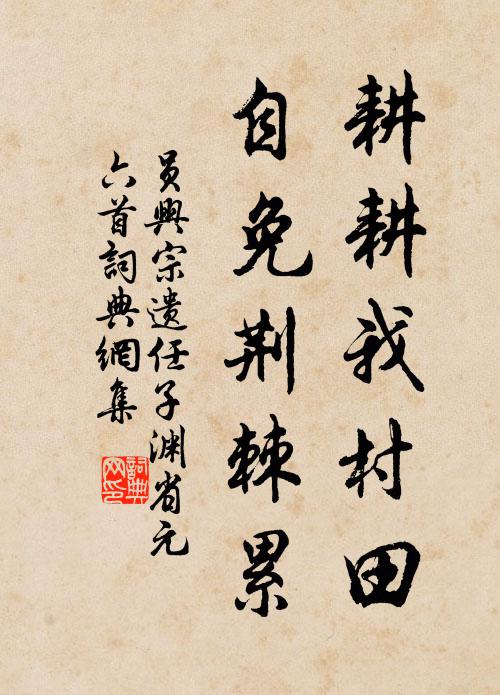 耕耕我村田
自免荆棘累
员興宗遗任子渊省元
六首詞典網集
詞典网印